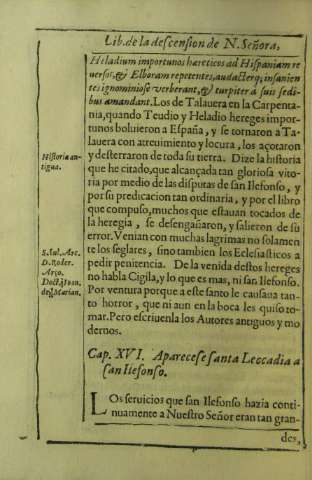 Lib. de la descension de N. Señora,
Heladium importunos hæreticos ad Hispaniam re
uersos, & Elboram repetentes, audacterq; insanien
tes ignominiose verberant, & turpiter à suis sedi
bus amandant. Los de Talauera en la Carpenta-
nia, quando Teudio y Heladio hereges impor-
tunos boluieron a España, y se tornaron a Ta-
lauera con atreuimiento y locura, los açotaron
y desterraron de toda su tierra. Dize la historia
que he citado, que alcançada tan gloriosa vito-
ria por medio de las disputas de san Ilefonso, y
por su predicacion tan ordinaria, y por el libro
que compuso, muchos que estauan tocados de
la heregia, se desengañaron, y salieron de su
error. Venian con muchas lagrimas no solamen
te los seglares, sino tambien los Eclesiasticos a
pedir penitencia. De la venida destos hereges
no habla Cigila, y lo que es mas, ni san Ilefonso.
Por ventura porque a este santo le causaua tan-
to horror, que ni aun en la boca les quiso to-
mar. Pero escriuenla los Autores antiguos y mo
dernos.
Historia an-
tigua.
S. Iul. Arc.
D. Roder.
Arço.
Doct. q Iuan.
de q Marian.
Cap. XVI. Aparecese santa Leocadia a
san Ilefonso.
LOs seruicios que san Ilefonso hazia conti-
nuamente a Nuestro Señor eran tan gran-
des,